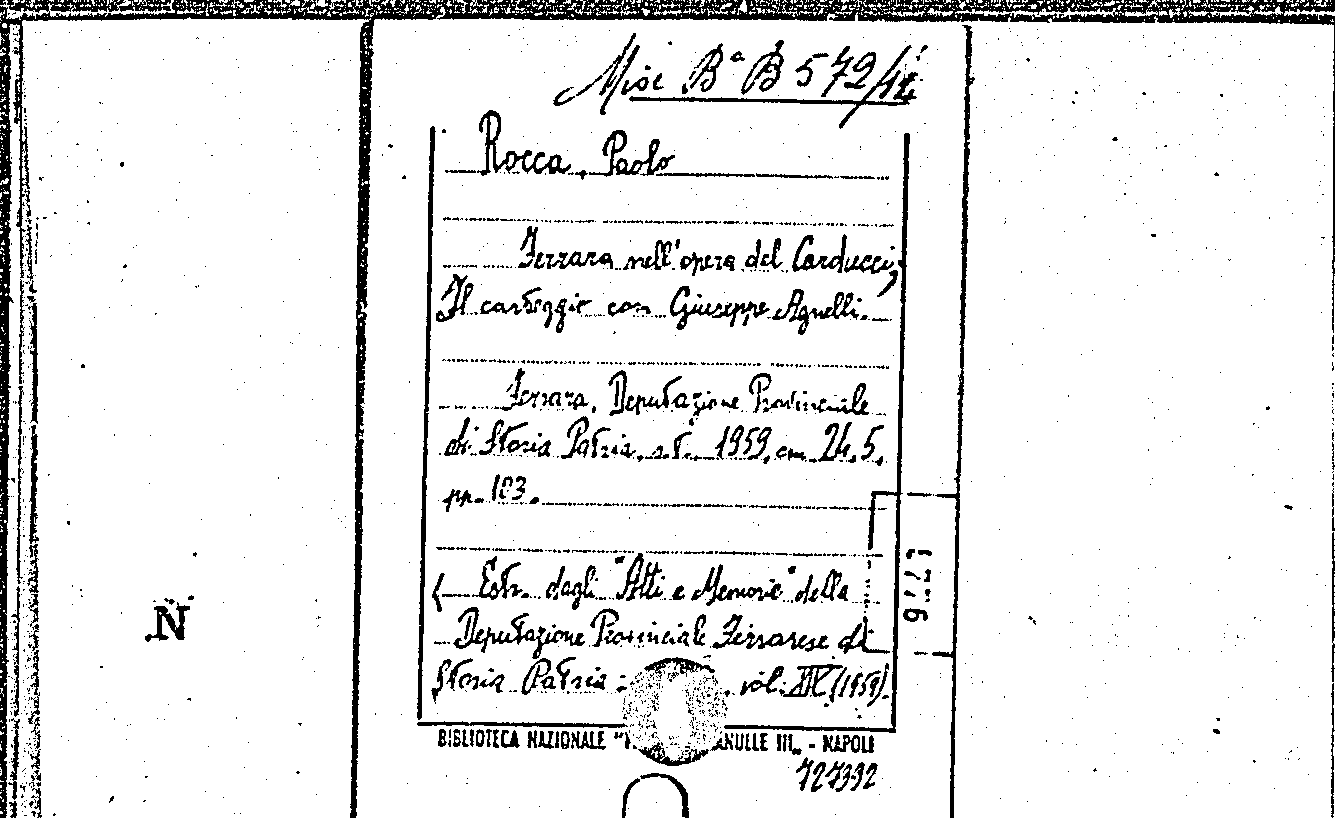 Misc Bª B 572/14
Rocca, Paolo
Ferrara nell'opera del Carducci,
Il carteggio con Giuseppe Agnelli.
Ferrara, Deputazione Provinciale
di Storia Patria, s.t. 1959, cm. 24,5,
pp. 103.
( Estr. dagli "Atti e Memorie" della
Deputazione Provinciale Ferrarese di
Storia Patria: vol. XIX (1959).
BIBLIOTECA NAZIONALE " ANULLE III„ - NAPOLI
727392
N